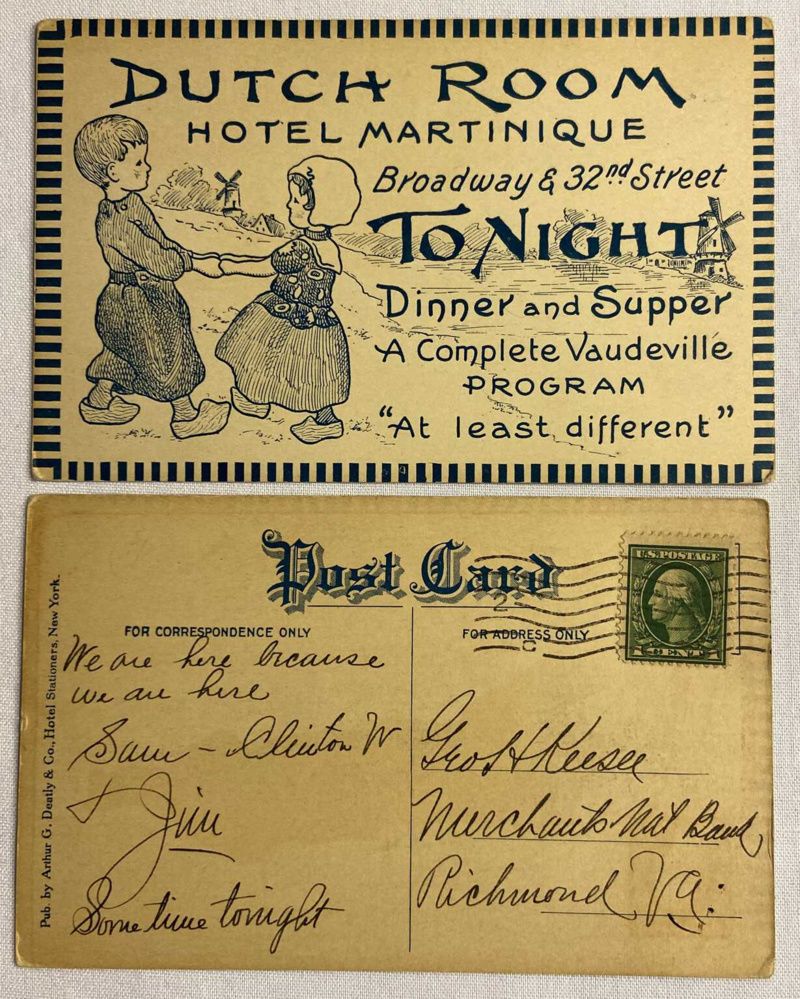 DUTCH ROOM
HOTEL MARTINIQUE
Broadway & 32nd Street
TO NIGHT
Dinner and Supper
A Complete Vaudeville
PROGRAM
"At least different"
Post Card
FOR CORRESPONDENCE ONLY
FOR ADDRESS ONLY
U.S. POSTAGE
CENT
Pub. by Arthur G. Deatly & Co., Hotel Stationers, New York.
We are here because
we are here
Sam - Clinton W
+ Jim
Some time tonight
Geo H Keesee
Merchants Nat Bank,
Richmond Va.